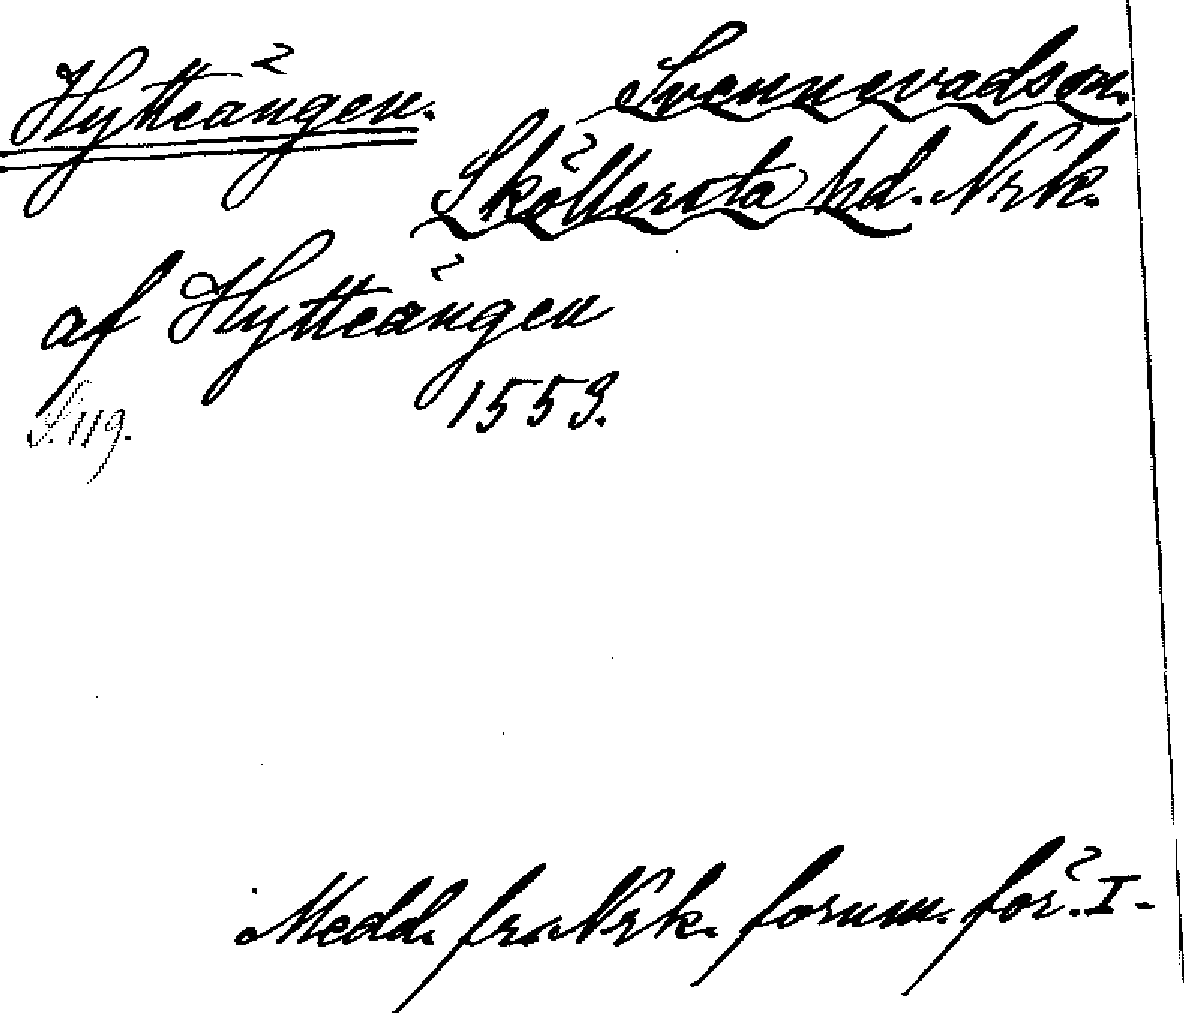 Hytteängen. Svennevad sn.
Sköllersta hd. Nrk.
af Hytteängen
1553.
S. 119.
Medd. fr. Nrk. fornm. för. I.